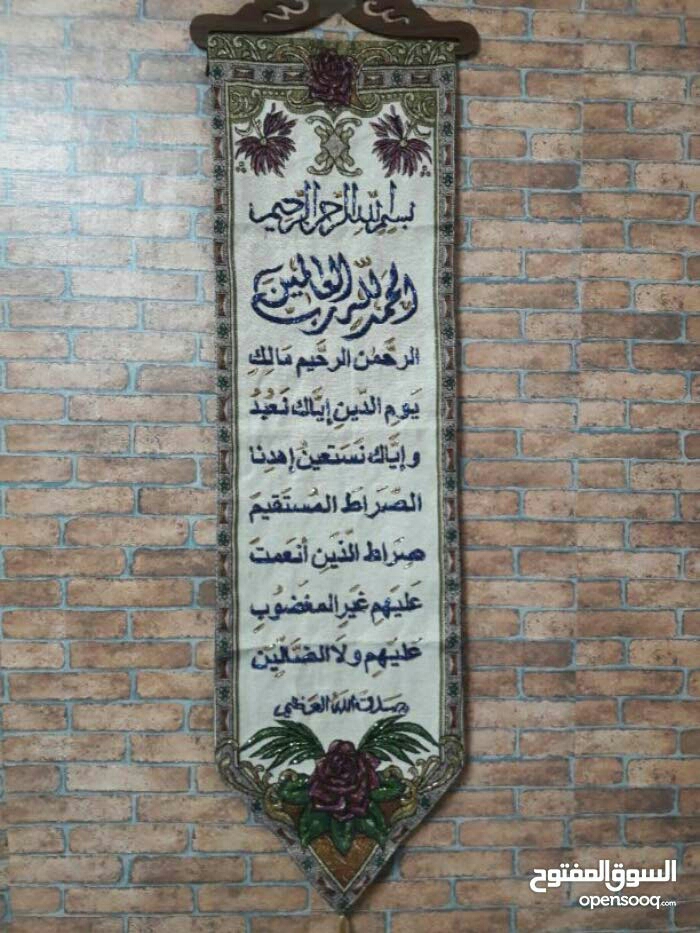 بسم الله الرحمن الرحيم
الحمد لله رب العالمين
الرحمن الرحيم مَالِكِ
يَومِ الدّينِ إيّاكَ نَعبُدُ
وإيّاكَ نَستَعينُ إهدِنا
الصِّرَاطَ المُستَقيمَ
صِرَاطَ الّذينَ أنعَمتَ
عَلَيهِم غَيرِ المَغضُوبِ
عَلَيهِم وَلَا الضّالّينَ
صدق الله العظيم
السوق المفتوح
opensooq.com